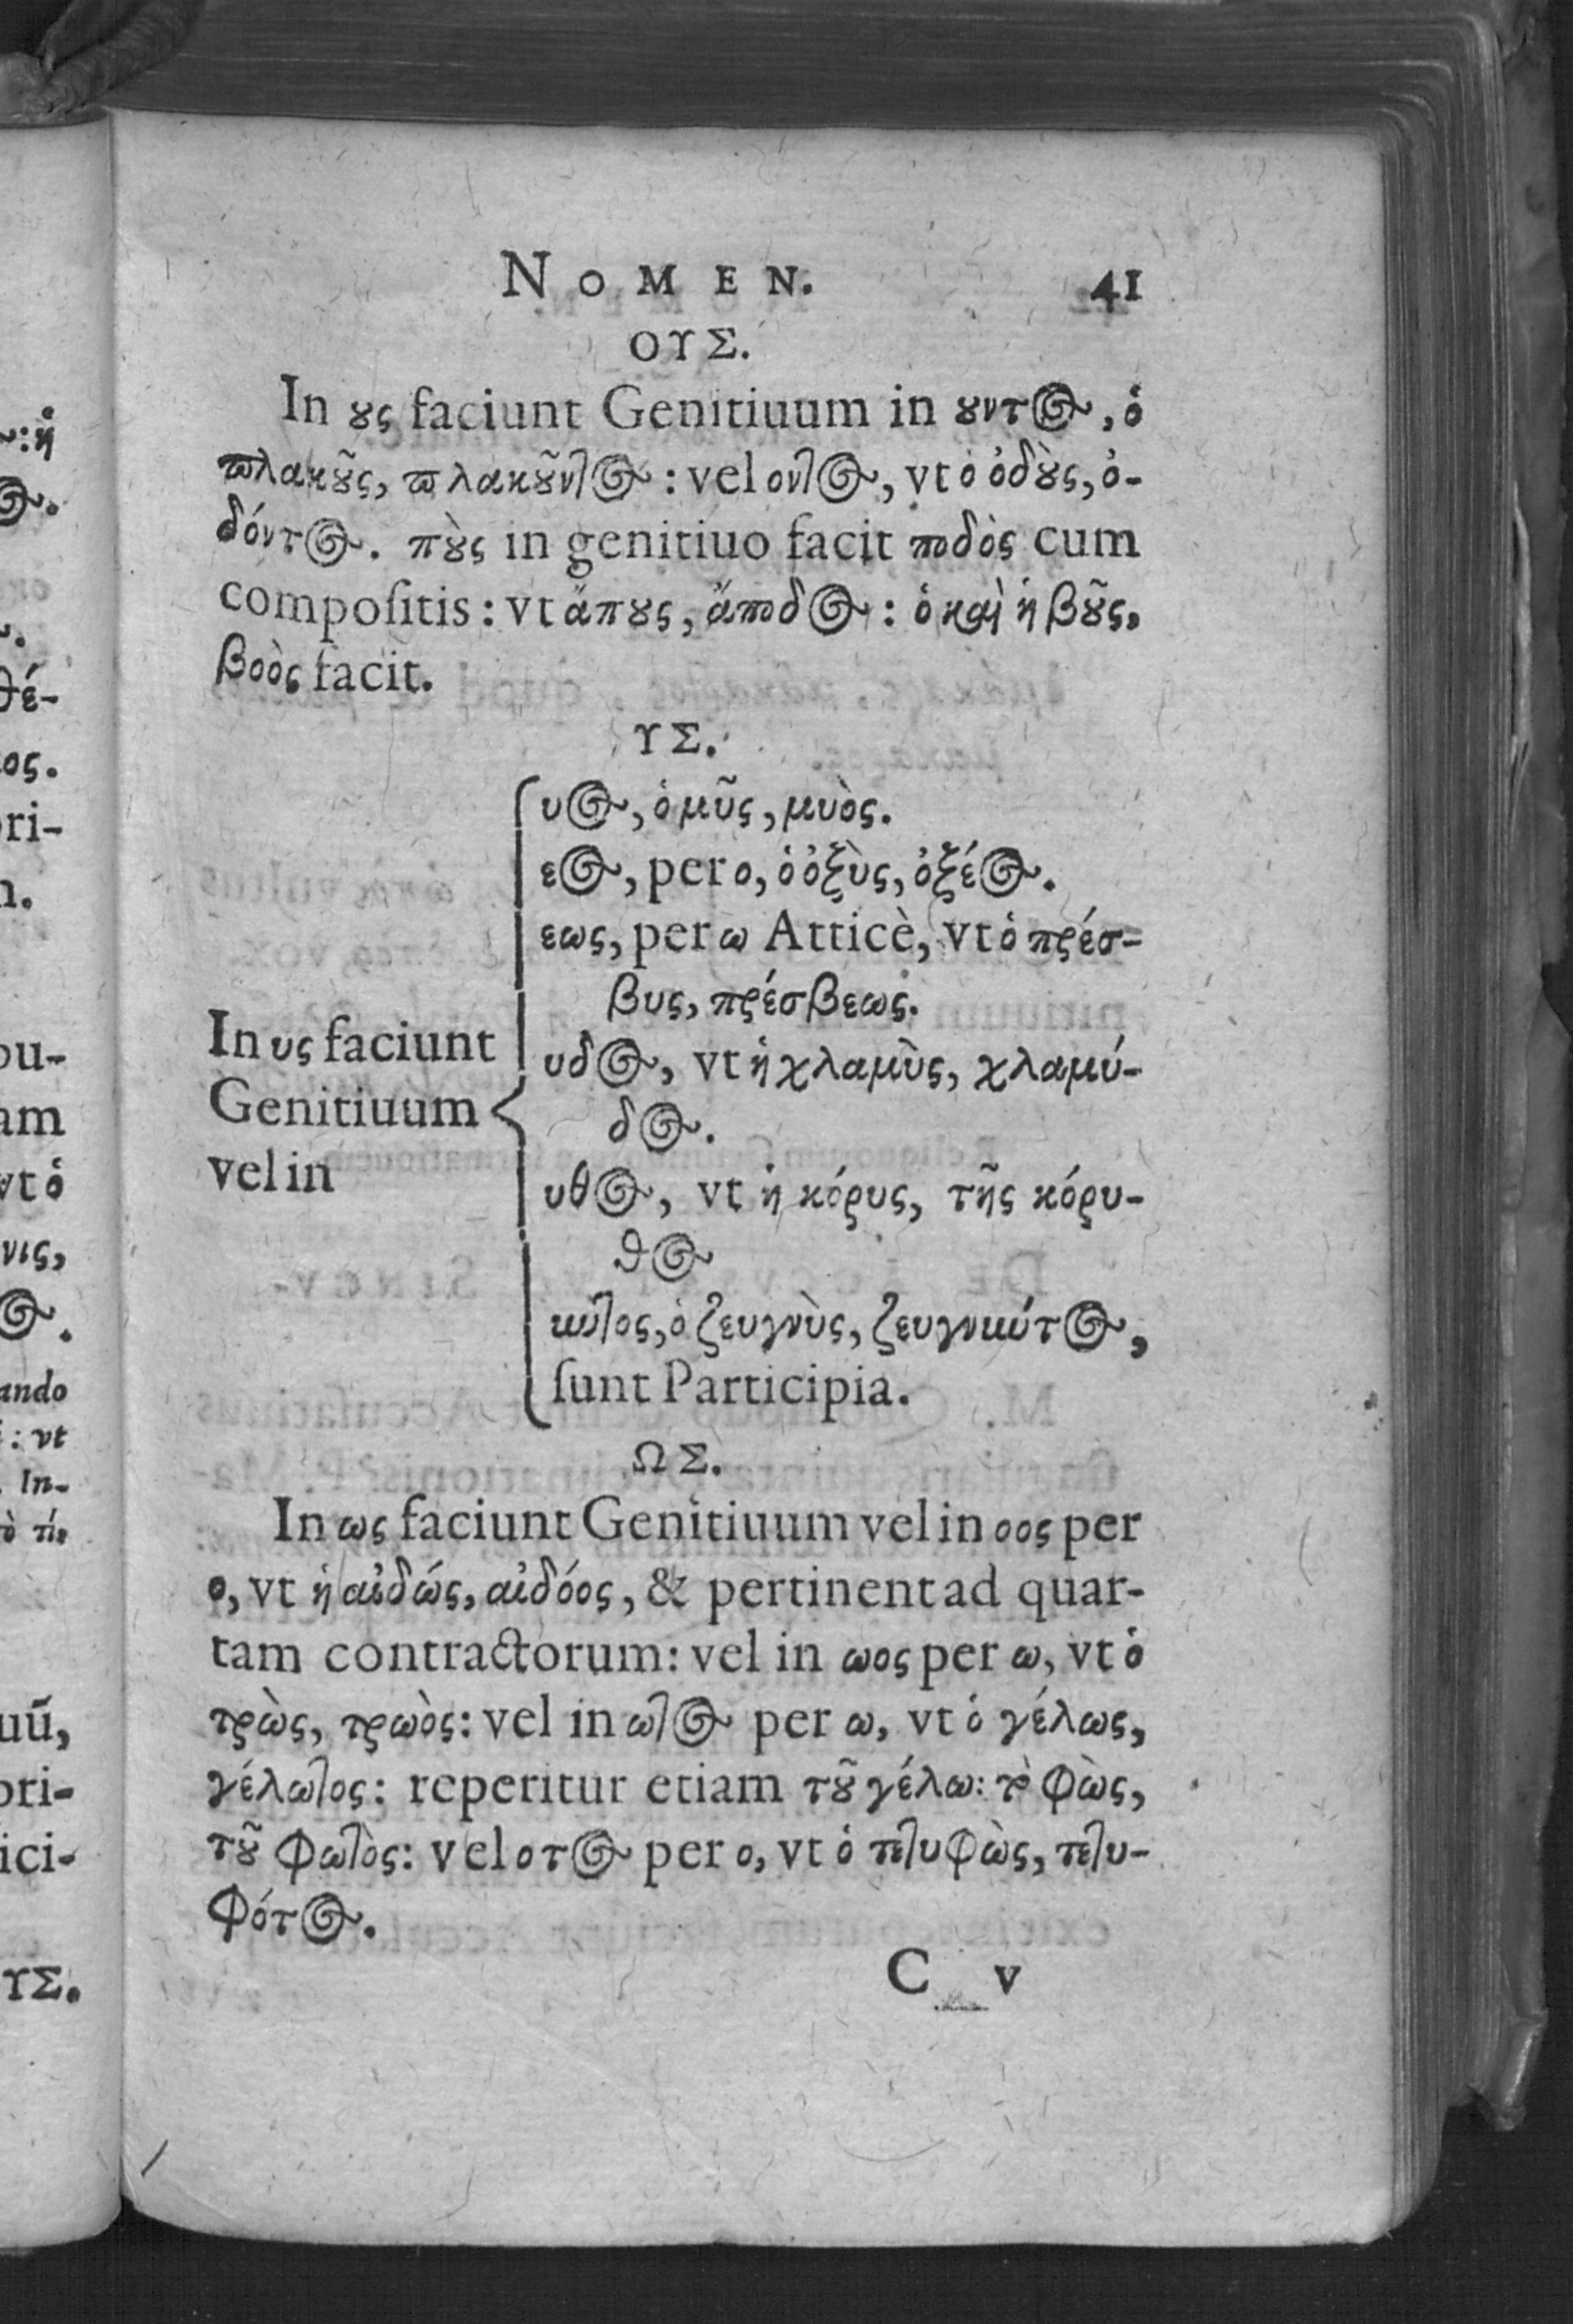 NOMEN. 41
ΟΥΣ.
In ȣς faciunt Genitiuum in ȣντος, ὁ
πλακȣ͂ς, πλακȣ͂ντος: vel οντος, vt ὁ ὀδȣ̀ς, ὀ-
δόντος. πȣ̀ς in genitiuo facit ποδὸς cum
compoſitis: vt ἄπȣς, ἄποδος: ὁ καὶ ἡ βȣ͂ς,
βοὸς facit.
ΥΣ.
υος, ὁ μῦς, μυὸς.
εος, per ο, ὁ ὀξὺς, ὀξέος.
εως, per ω Atticè, vt ὁ πρέσ-
βυς, πρέσβεως.
In υς faciunt
Genitiuum
vel in
υδος, vt ἡ χλαμὺς, χλαμύ-
δος.
υθος, vt ἡ κόρυς, τῆς κόρυ-
θος
ὁ ζευγνὺς,
ſunt Participia.
ΩΣ.
In ως faciunt Genitiuum vel in οος per
ο, vt ἡ αἰδώς, αἰδόος, & pertinent ad quar-
tam contractorum: vel in ωος per ω, vt ὁ
τρὼς, τρωὸς: vel in ωτος per ω, vt ὁ γέλως,
γέλωτος: reperitur etiam τȣ͂ γέλω: τὸ φὼς,
τȣ͂ φωτὸς: vel οτος per ο, vt ὁ τετυφὼς, τετυ-
φότος.
C v